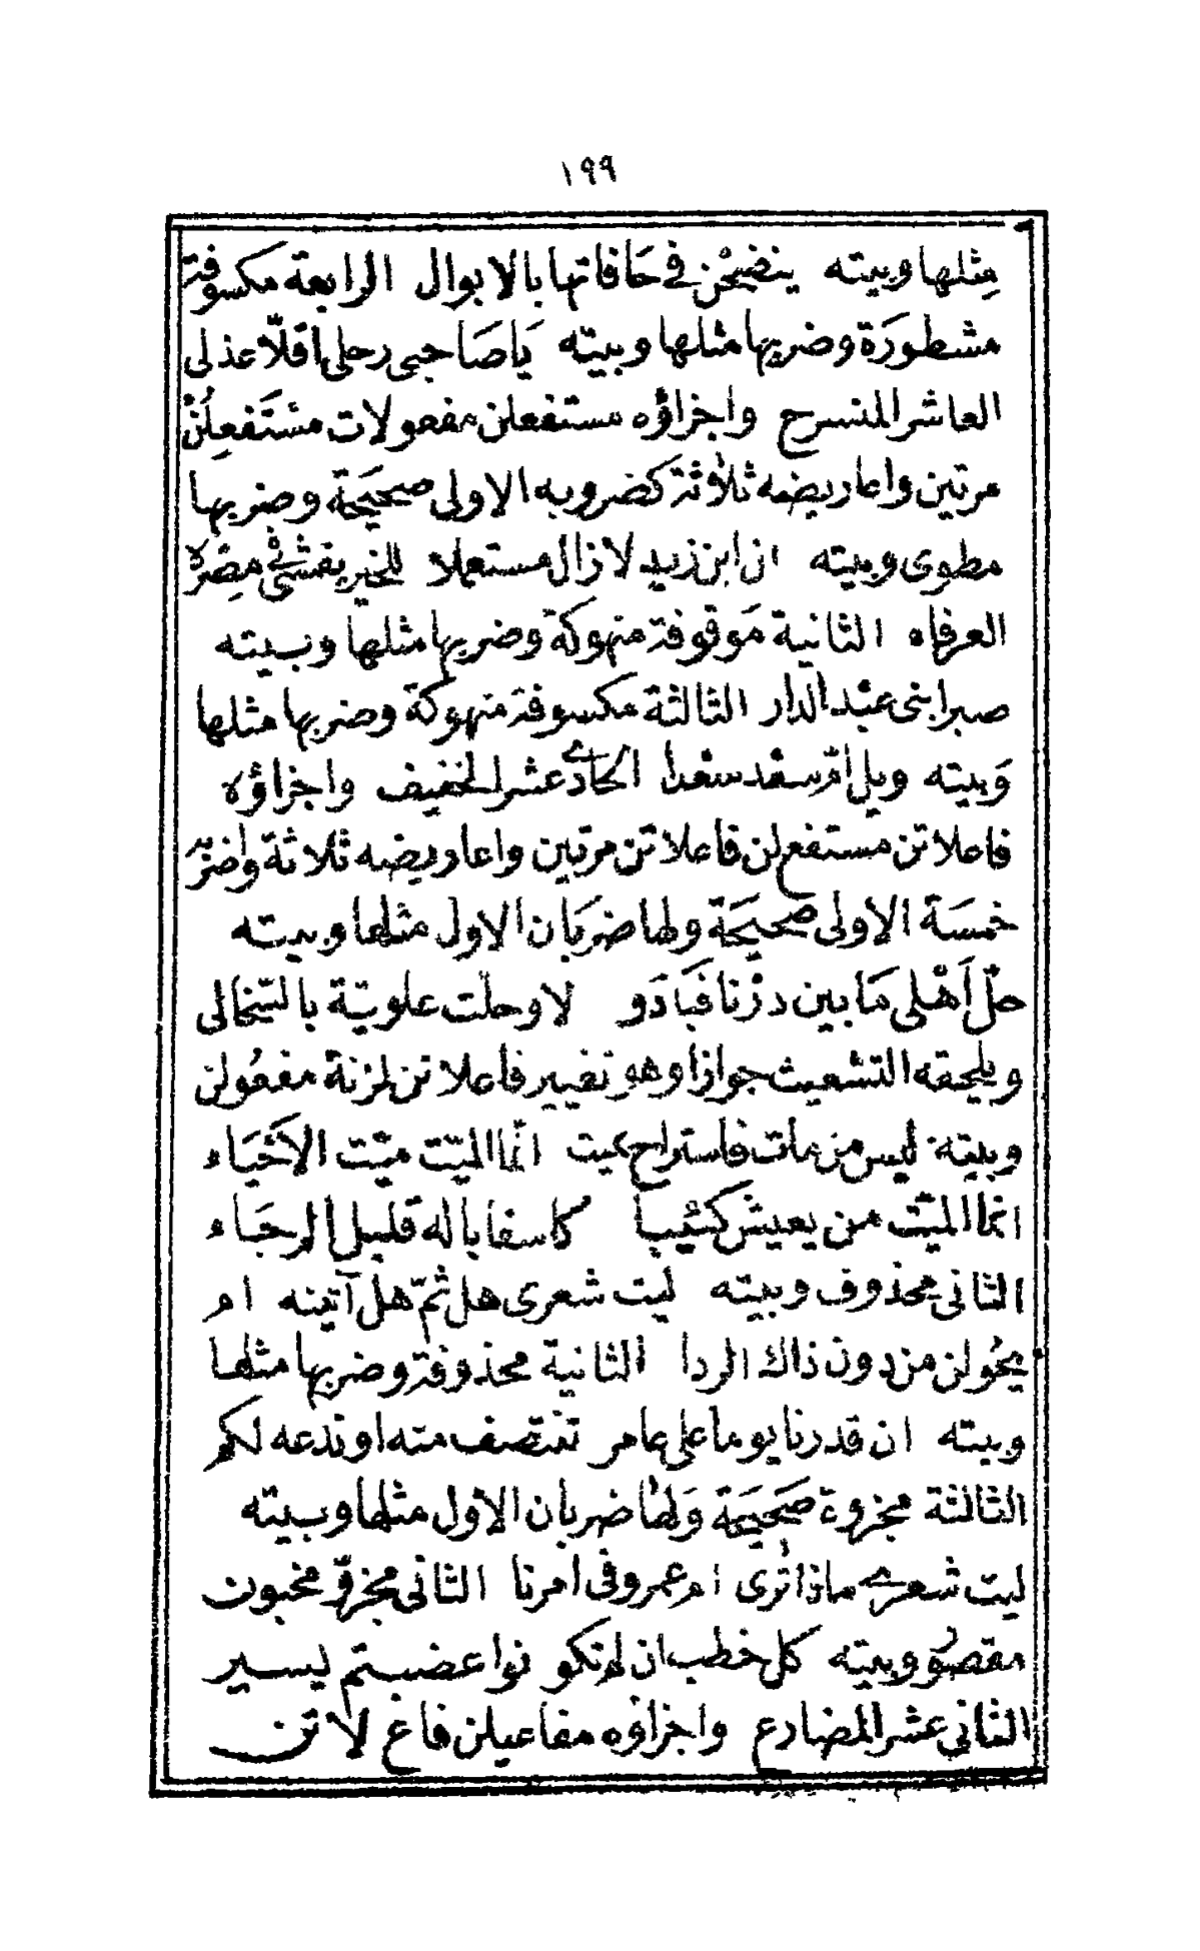 ١٩٩
مثلها وبيته ينضحْن في حَافاتها بالابوال الرابعة مكسوفة
مشطورَة وضربها مثلها وبيته يَاصَاحبى رحلى اقلّا عذلى
العاشر المنسرح واجزاؤه مستفعلن مفعولات مسْتَفعِلُنْ
مرتين واعاريضه ثلاثة كضروبه الاولى صحيحَة وضربها
مطوى وبيته ان ابن زيد لازال مستعملا للخير يفشى فى مِصْرَه
العرفاه الثانية مَوقوفة منهوكة وضربها مثلها وبيته
صبرا بنى عبْد الدار الثالثة مكسوفة منهوكة وضربها مثلها
وَبيته ويل امّ سعْد سعْدا الحادے عشر الخفيف واجزاؤه
فاعلاتن مستفع لن فاعلاتن مرتين واعاريضه ثلاثة واضربه
خمسَة الاولى صحيحَة ولها ضربَان الاول مثلها وبيته
حلّ اَهْلى مَا بين درْنا فبَادَو لا وحلّت علويّة بالسّخالى
ويلحقه التشعيث جوازا وهو تغيير فاعلاتن لزنة مفعُولن
وبيته ليس من مات فاستراح بميت انّما الميّت ميّت الاَحْيَاء
انما الميّت من يعيش كئيبا كاسفا باله قليل الرجَاء
الثانى محذوف وبيته ليت شعرى هل ثمّ هل آتينه ام
يحُولن من دون ذاك الردا الثانية محذوفة وضربها مثلها
وبيته ان قدرنا يوما على عامر ننتصف منه او ندعه لكم
الثالثة مجزوءة صَحيحَة وَلها ضربان الاول مثلها وبيته
ليت شعرے ماذا ترى ام عمرو فى امرنا الثانى مجزوّ مخبون
مقصُور وبيته كل خطب ان لم تكو نوا غضبتم يسير
الثانى عشر المضارع واجزاؤه مفاعيلن فاع لا تن